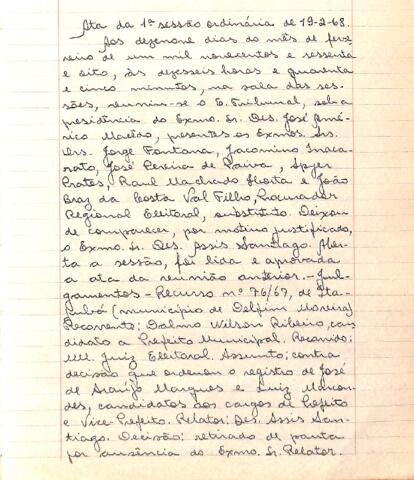 Ata da 1ª sessão ordinária de 19-2-68.
Aos dezenove dias do mês de feve
reiro de um mil novecentos e sessenta
e oito, às dezesseis horas e quarenta
e cinco minutos, na sala das ses-
sões, reuniu-se o E. Tribunal, sob a
presidência do Exmo. Sr. Des. José Amé-
rico Macêdo, presentes os Exmos. Srs.
Drs. Jorge Fontana, Jacomino Inaca-
rato, José Pereira de Paiva, Spyer
Prates, Raul Machado Horta e João
Braz da Costa Val Filho, Procurador
Regional Eleitoral, substituto. Deixou
de comparecer, por motivo justificado,
o Exmo. Sr. Des. Assis Santiago. Aber-
ta a sessão, foi lida e aprovada
a ata da reunião anterior. - Jul-
gamentos - Recurso nº 76/67, de Ita-
jubá (município de Delfim Moreira)
Recorrente: Dalmo Wilson Ribeiro, can
didato a Prefeito Municipal. Recorrido:
MM. Juiz Eleitoral. Assunto: contra
decisão que ordenou o registro de José
de Araújo Marques e Luiz Marcon-
des, candidatos aos cargos de Prefeito
e Vice-Prefeito. Relator: Des. Assis San-
tiago. Decisão: retirado de pauta
por ausência do Exmo. Sr. Relator.